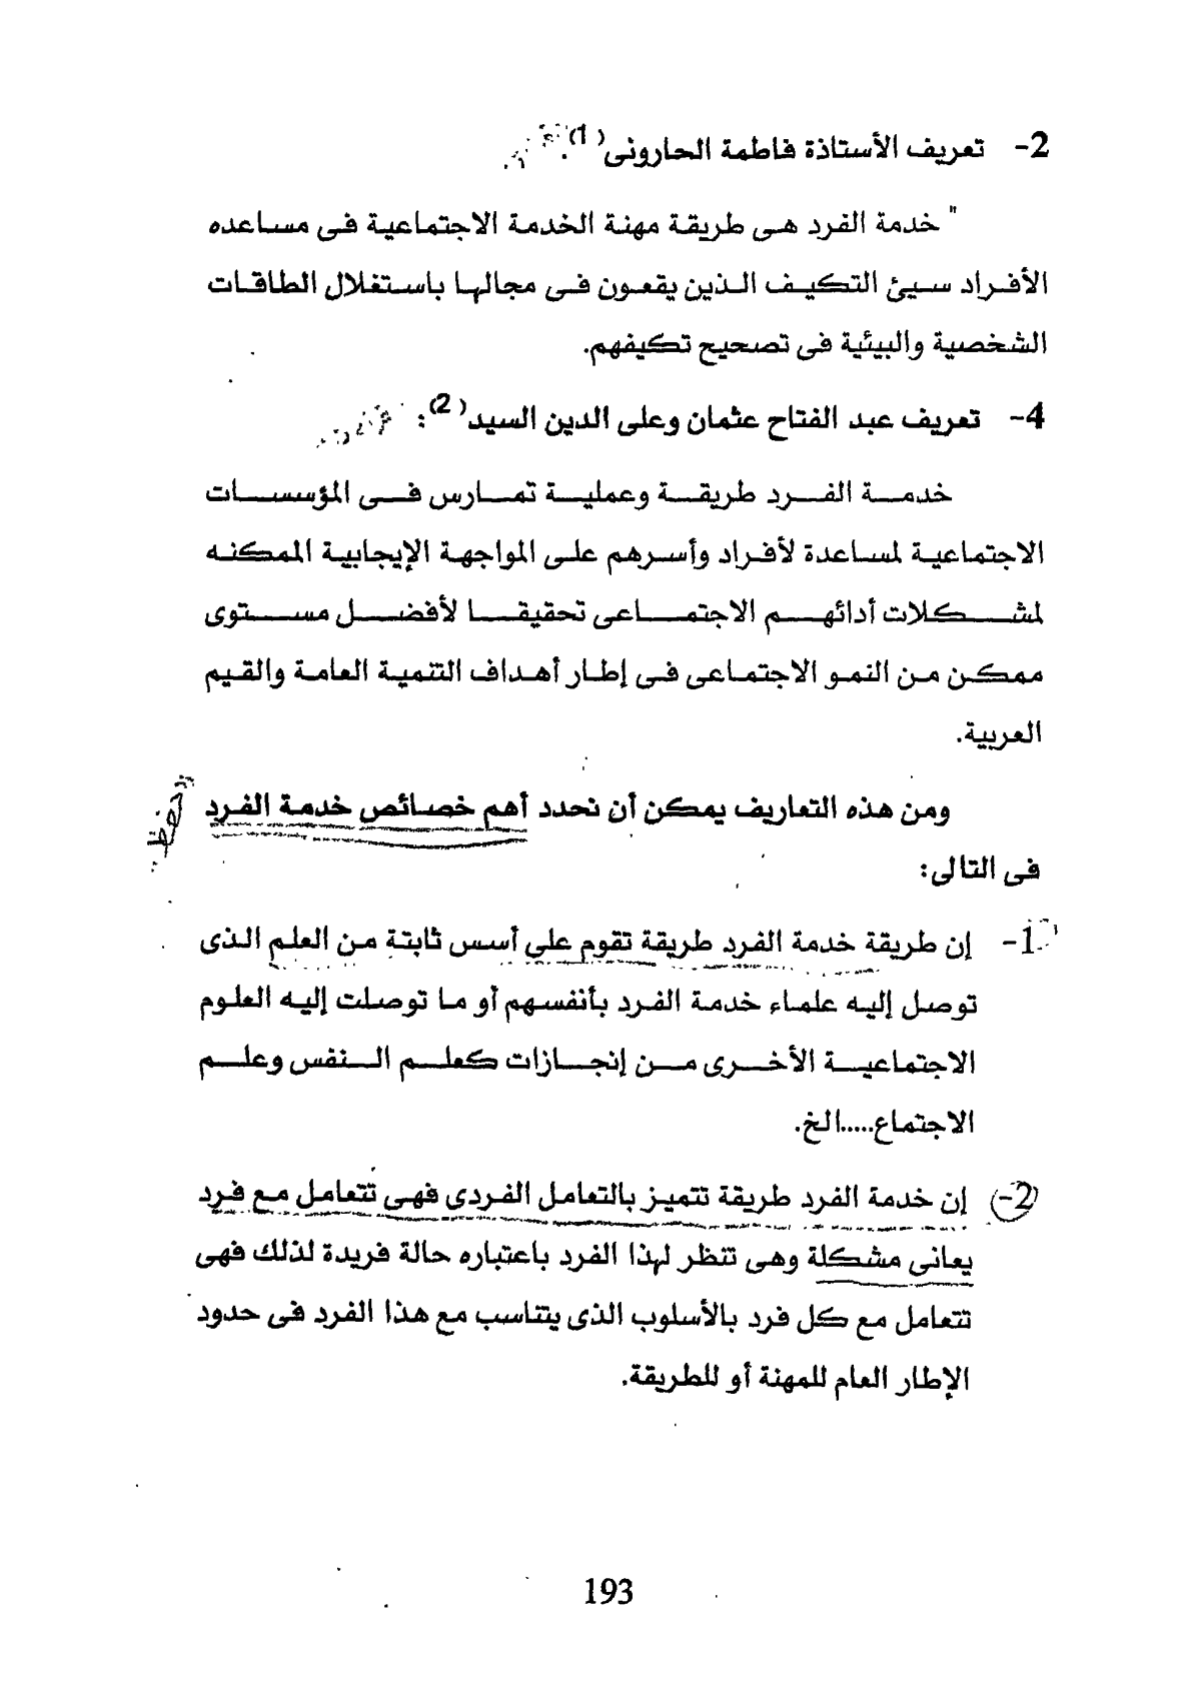 2- تعريف الأستاذة فاطمة الحارونى(1).
" خدمة الفرد هى طريقة مهنة الخدمة الاجتماعية فى مساعده
الأفراد سيئ التكيف الذين يقعون فى مجالها باستغلال الطاقات
الشخصية والبيئية فى تصحيح تكيفهم.
4- تعريف عبد الفتاح عثمان وعلى الدين السيد(2):
خدمة الفرد طريقة وعملية تمارس فى المؤسسات
الاجتماعية لمساعدة لأفراد وأسرهم على المواجهة الإيجابية الممكنه
لمشكلات أدائهم الاجتماعى تحقيقا لأفضل مستوى
ممكن من النمو الاجتماعى فى إطار أهداف التنمية العامة والقيم
العربية.
ومن هذه التعاريف يمكن أن نحدد أهم خصائص خدمة الفرد
فى التالى:
1- إن طريقة خدمة الفرد طريقة تقوم على أسس ثابتة من العلم الذى
توصل إليه علماء خدمة الفرد بأنفسهم أو ما توصلت إليه العلوم
الاجتماعية الأخرى من إنجازات كعلم النفس وعلم
الاجتماع.....الخ.
2- إن خدمة الفرد طريقة تتميز بالتعامل الفردى فهى تتعامل مع فرد
يعانى مشكلة وهى تنظر لهذا الفرد باعتباره حالة فريدة لذلك فهى
تتعامل مع كل فرد بالأسلوب الذى يتناسب مع هذا الفرد فى حدود
الإطار العام للمهنة أو للطريقة.
193